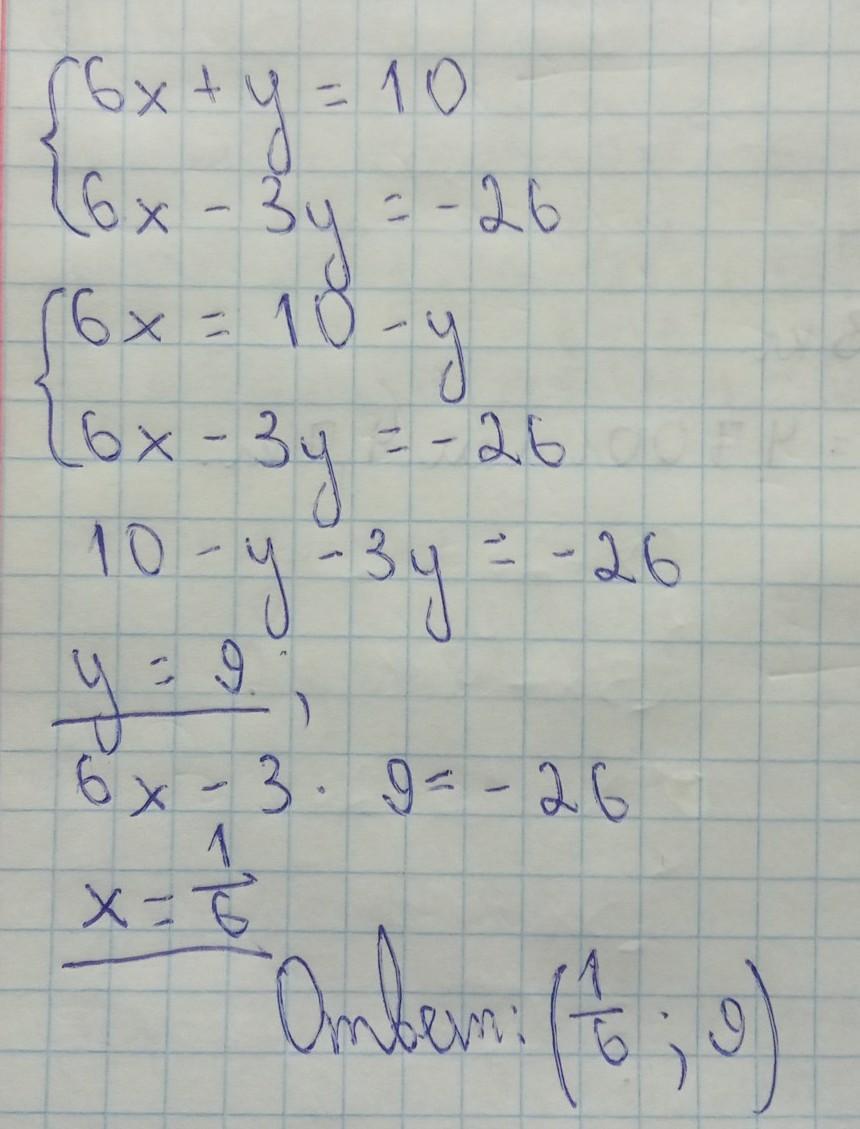 {6x + y = 10
{6x - 3y = -26
{6x = 10 - y
{6x - 3y = -26
10 - y - 3y = -26
y = 9;
6x - 3 · 9 = -26
x = 1/6
Ответ: (1/6; 9)